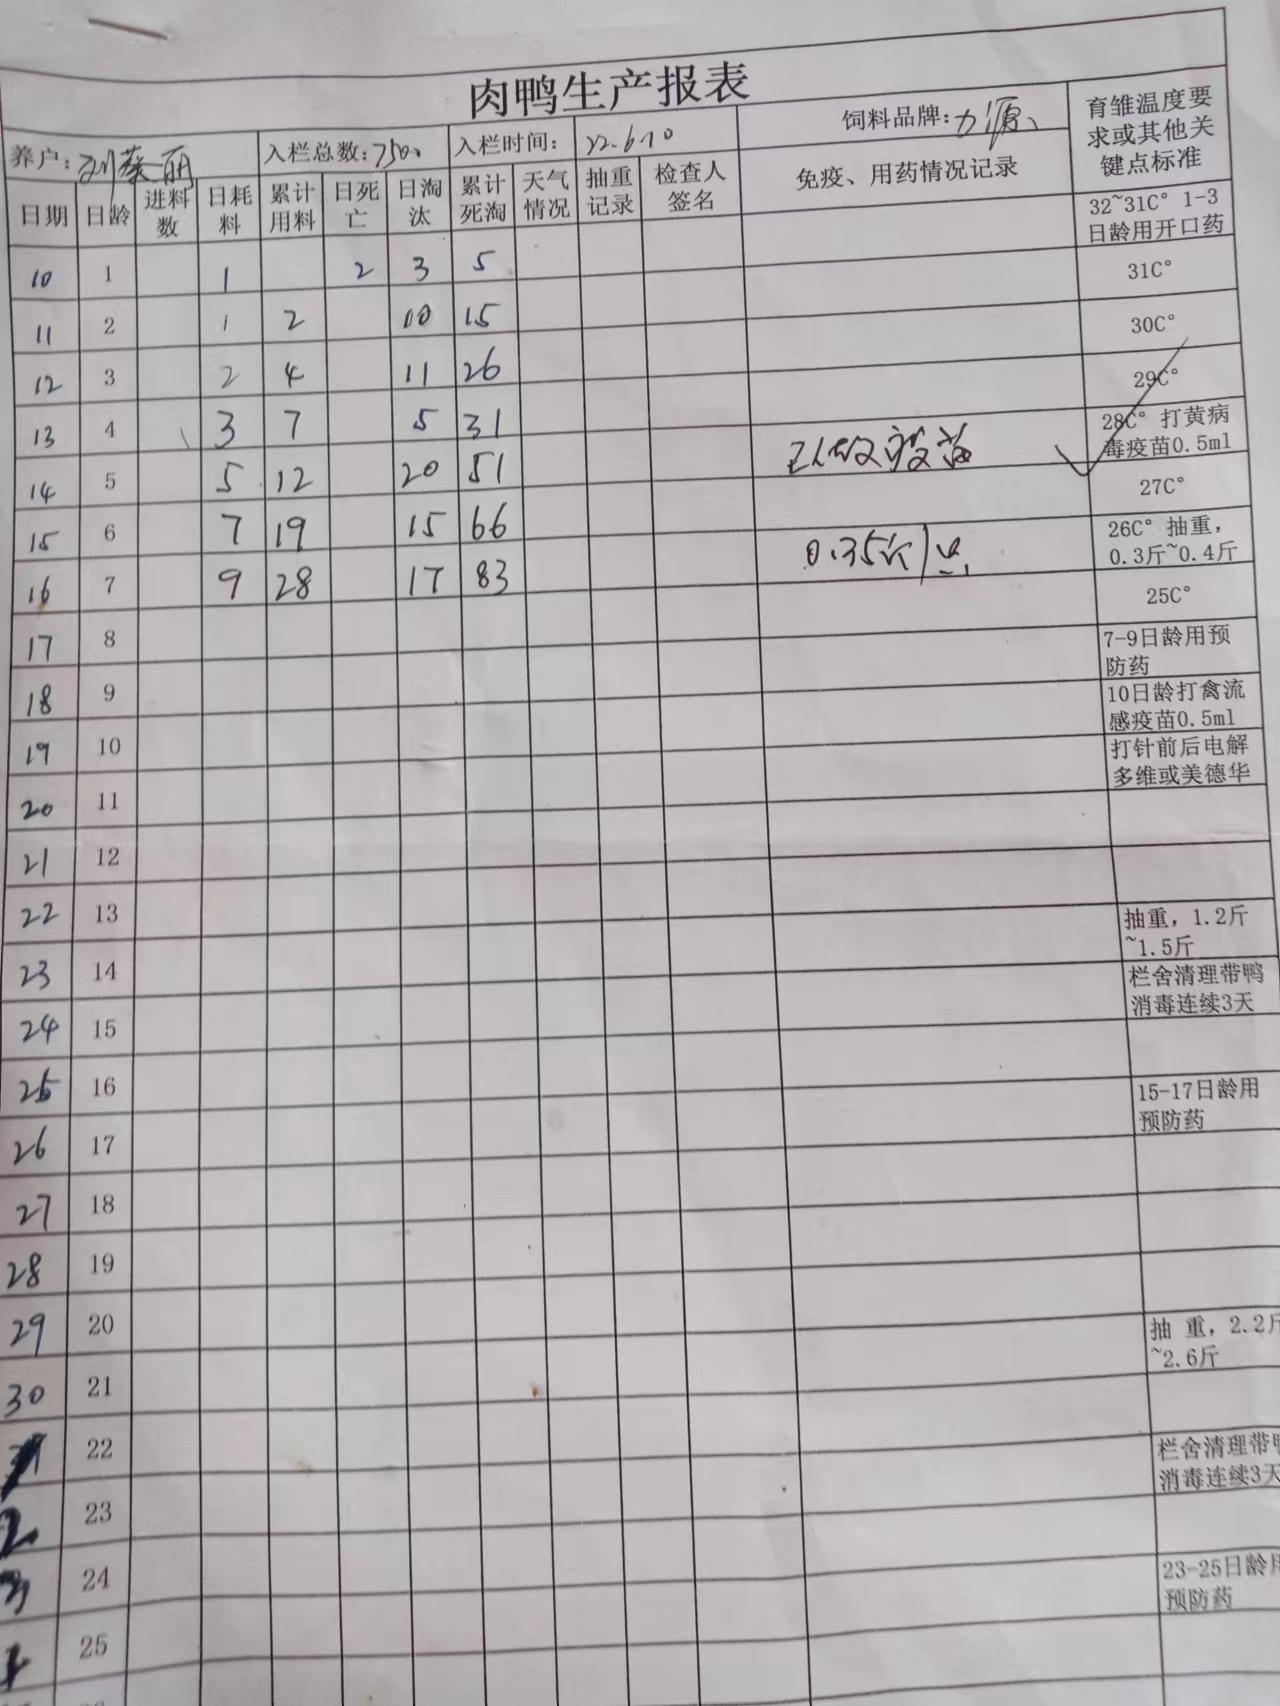 肉鸭生产报表
养户：刘蔡丽 入栏总数：7500 入栏时间： 22.6.10 饲料品牌：力源 育雏温度要求或其他关键点标准
日期 日龄 进料数 日耗料 累计用料 日死亡 日淘汰 累计死淘 天气情况 抽重记录 检查人签名 免疫、用药情况记录
32~31C° 1-3日龄用开口药
10 1 1 2 3 5 31C°
11 2 1 2 10 15 30C°
12 3 2 4 11 26 29C°
13 4 3 7 5 31 已做疫苗 28C° 打黄病毒疫苗0.5ml
14 5 5 12 20 51 27C°
15 6 7 19 15 66 0.35斤/只 26C° 抽重，0.3斤~0.4斤
16 7 9 28 17 83 25C°
17 8 7-9日龄用预防药
18 9 10日龄打禽流感疫苗0.5ml
19 10 打针前后电解多维或美德华
20 11
21 12
22 13 抽重，1.2斤~1.5斤
23 14 栏舍清理带鸭消毒连续3天
24 15
25 16 15-17日龄用预防药
26 17
27 18
28 19
29 20 抽 重，2.2斤~2.6斤
30 21
22 栏舍清理带鸭消毒连续3天
2 23
3 24 23-25日龄用预防药
25